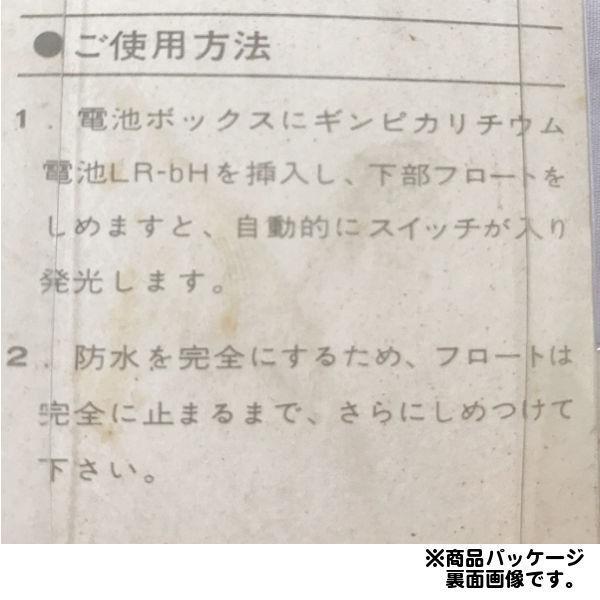 ●ご使用方法
1．電池ボックスにギンピカリチウム
電池LR-bHを挿入し、下部フロートを
しめますと、自動的にスイッチが入り
発光します。
2．防水を完全にするため、フロートは
完全に止まるまで、さらにしめつけて
下さい。
※商品パッケージ
裏面画像です。